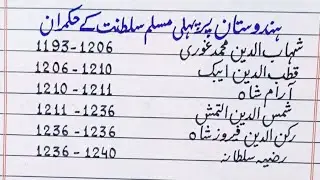 ہندوستان پر پہلی مسلم سلطنت کے حکمران
شہاب الدین محمد غوری 1193-1206
قطب الدین ایبک 1206-1210
آرام شاہ 1210-1211
شمس الدین التمش 1211-1236
رکن الدین فیروز شاہ 1236-1236
رضیہ سلطانہ 1236-1240